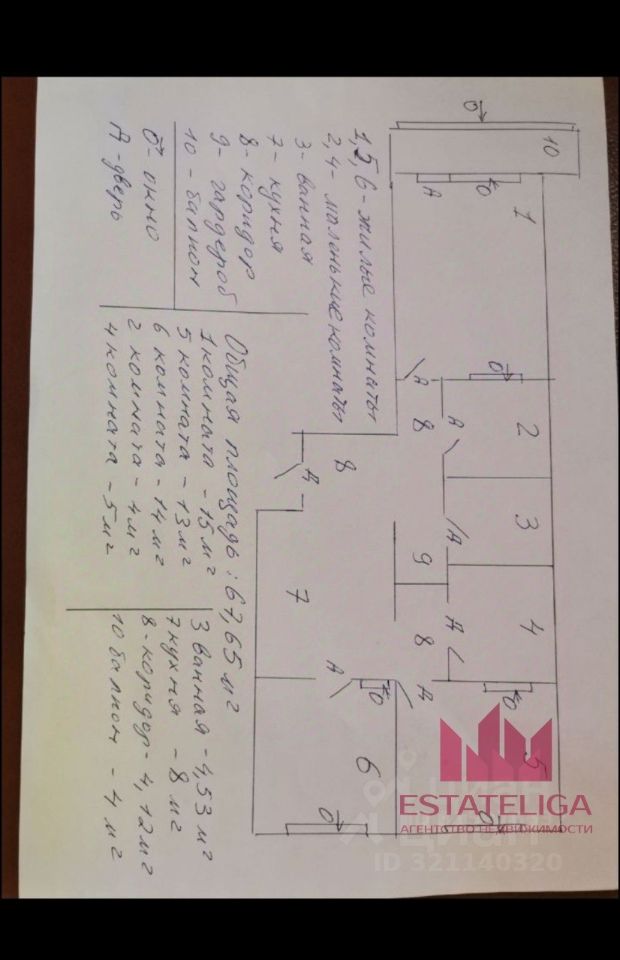 1,5,6 - жилые комнаты
2,4 - маленькие комнаты
3 - ванная
7 - кухня
8 - коридор
9 - гардероб
10 - балкон
О - окно
Д - дверь
Общая площадь: 67,65 м²
1 комната - 15 м²
5 комната - 13 м²
6 комната - 14 м²
2 комната - 4 м²
4 комната - 5 м²
3 ванная - 4,53 м²
7 кухня - 8 м²
8 - коридор - 4,12 м²
10 балкон - 4 м²
О
10
Д
О
1
О
Д
8
Д
2
8
Д
3
Д
9
7
8
Д
4
Д
О
Д
О
6
5
О
О
ESTATELIGA
АГЕНТСТВО НЕДВИЖИМОСТИ
Циан
ID 321140320